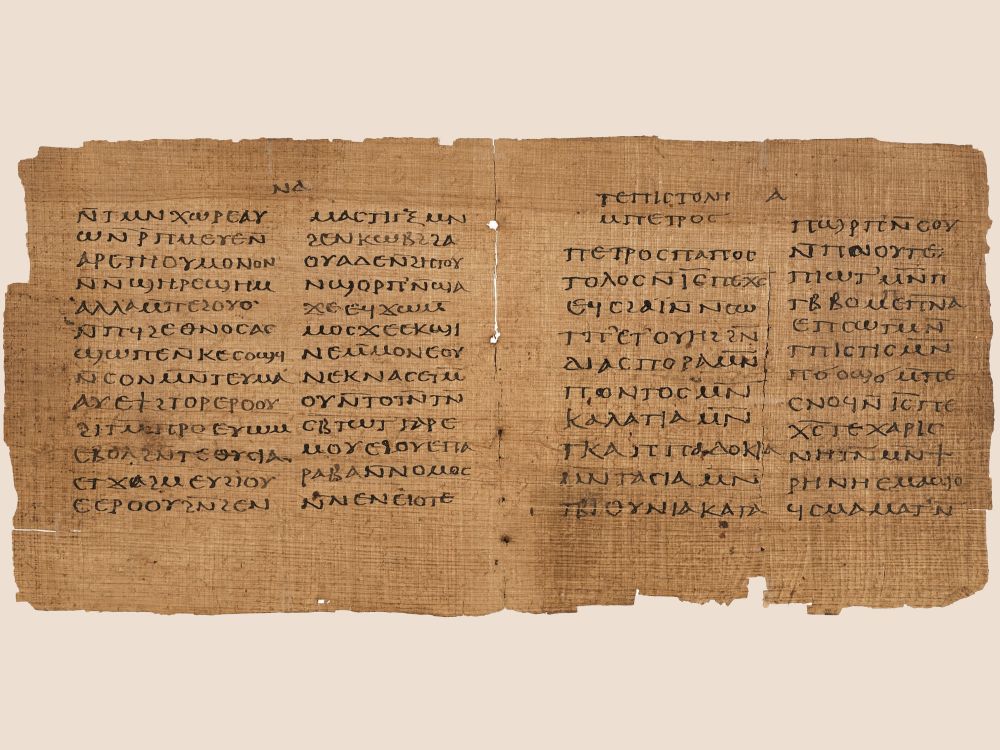 ⲛⲁ
ⲛ̄ⲧⲙⲛⲭⲱⲣⲉⲁⲩ
ⲱⲛ̄ⲣ̄ⲡⲙⲉⲩⲉⲛ
ⲁⲣⲉⲧⲏⲟⲩⲙⲟⲛⲟⲛ
ⲛ̄ⲛϣⲏⲣⲉϣⲏⲙ
ⲁⲗⲗⲁⲙⲡⲉϩⲟⲩⲟ
ⲙ̄ⲡϥϩⲉⲑⲛⲟⲥⲁⲥ
ϣⲱⲡⲉⲛⲕⲉⲥⲟϣϥ
ⲛ̄ⲥⲟⲛⲙⲛ̄ⲧⲉⲩⲙⲁ
ⲁⲩⲉϯϩⲧⲟⲣⲉⲣⲟⲟⲩ
ϩⲓⲧⲙ̄ⲡⲣⲣⲟⲉⲩⲱⲙ
ⲉⲃⲟⲗϩⲛ̄ⲧⲉⲑⲩⲥⲓⲁ
ⲉⲧϫⲁϩⲙⲉⲩϩⲓⲟⲩ
ⲉⲉⲣⲟⲟⲩϩⲛ̄ϩⲉⲛ
ⲙⲁⲥⲧⲓⲅⲝ̄ⲙⲛ
ϩⲉⲛⲕⲱⲃϩ̄ϩⲁ
ⲟⲩⲁⲇⲉⲛϩⲏⲧⲟⲩ
ⲛ̄ϣⲟⲣⲡ̄ⲛ̄ϣⲁ
ϫⲉⲉϥϫⲱⲙ̄
ⲙⲟⲥϫⲉⲉⲕⲛⲁϫⲓ
ⲛⲉⲙ̄ⲙⲟⲛⲉⲟⲩ
ⲛⲉⲕⲛⲁⲥⲉⲧⲙ̄
ⲟⲩⲛ̄ⲧⲟⲧⲛ̄ⲧⲛ̄
ⲥⲃ̄ⲧⲱⲧⲅⲁⲣⲉ
ⲙⲟⲩⲉϩⲟⲩⲉⲡⲁ
ⲣⲁⲃⲁⲛⲛⲟⲙⲟⲥ
ⲛ̄ⲛⲉⲛⲉⲓⲟⲧⲉ
ⲧⲉⲡⲓⲥⲧⲟⲗⲏ ⲁ
ⲙⲡⲉⲧⲣⲟⲥ
ⲡⲉⲧⲣⲟⲥⲡⲁⲡⲟⲥ
ⲧⲟⲗⲟⲥⲛ̄ⲓ̄ⲥ̄ⲡⲉⲭ̄ⲥ̄
ⲉϥⲥϩⲁⲓⲛ̄ⲛⲥⲱ
ⲧⲡ̄ⲉⲧⲟⲩⲏϩϩⲛ̄
ⲇⲓⲁⲥⲡⲟⲣⲁⲙ̄ⲛ
ⲡⲟⲛⲧⲟⲥⲙ̄ⲛ
ⲕⲁⲗⲁⲧⲓⲁⲙ̄ⲛ
ⲧⲕⲁⲡⲡⲁⲇⲟⲕⲓⲁ
ⲙⲛ̄ⲧⲁⲥⲓⲁⲙ̄ⲛ
ⲧⲃⲓⲑⲩⲛⲓⲁⲕⲁⲧⲁ
ⲡϣⲣ̄ⲡⲛ̄ⲥⲟⲩ
ⲛ̄ⲡⲛⲟⲩⲧⲉ
ⲡⲓⲱⲧⲙ̄ⲛⲡ
ⲧⲃ̄ⲃⲟⲙ̄ⲡⲉⲡ̄ⲛ̄ⲁ̄
ⲉⲡⲥⲱⲧⲙⲛ̄
ⲧⲡⲓⲥⲧⲓⲥⲙ̄ⲛ
ⲡϭⲟϣϭϣⲙ̄ⲡⲉ
ⲥⲛⲟϥⲛ̄ⲓ̄ⲥ̄ⲡⲉ
ⲭ̄ⲥ̄ⲧⲉⲭⲁⲣⲓⲥ
ⲛⲏⲧⲛ̄ⲙⲛ̄ϯ
ⲣⲏⲛⲏⲉⲙⲁϣⲟ
ϥⲥⲙⲁⲙⲁⲧⲛ̄